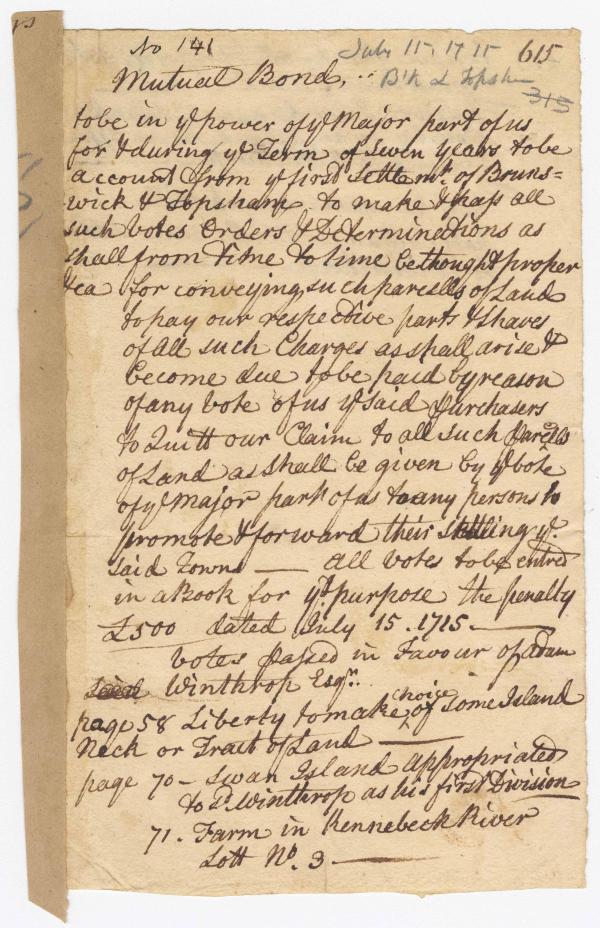 No 141
July 15, 1715 615
Mutual Bond,
B'k & Topsh
315
to be in ye power of ye Major part of us
for & during ye Term of seven years to be
account from ye first Settlemt. of Bruns=
wick & Topsham to make & pass all
such Votes Orders & Determinations as
shall from time to time be thought proper
&ca for conveying such parcells of Land
to pay our respective parts & shares
of all such Charges as shall arise &
become due to be paid by reason
of any Vote of us ye said Purchasers
to Quitt our Claim to all such Parcells
of Land as shall be given by ye vote
of ye Major part of us to any persons to
promote & forward their settling ye.
said Towns — All votes to be entred
in a Book for yt purpose the penalty
£500 dated July 15. 1715.—
Votes Passed in Favour of Adam
said Winthrop Esqr.
page 58 Liberty to make choice of some Island
Neck or Tract of Land —
page 70 – Swan Island appropriated
to sd. Winthrop as his first Division
71. Farm in Kennebeck River
Lott No. 3 —